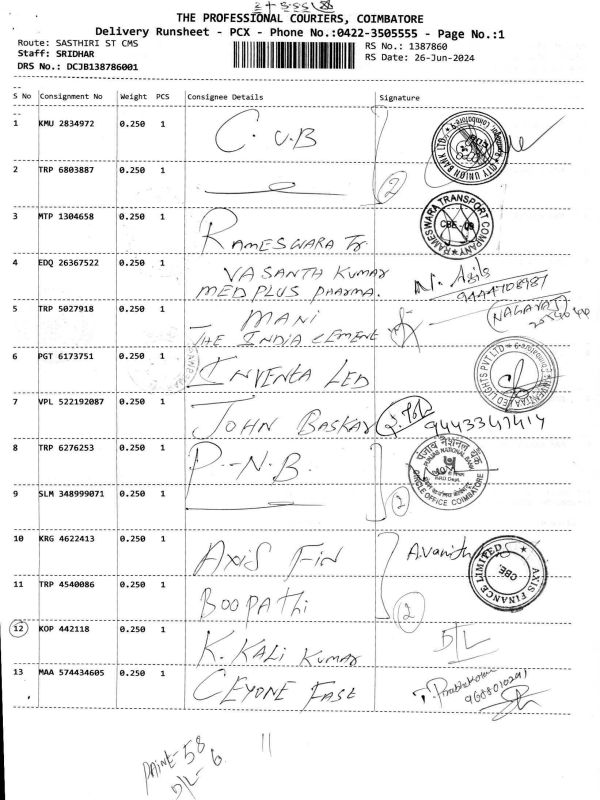 THE PROFESSIONAL COURIERS, COIMBATORE
Delivery Runsheet - PCX - Phone No.:0422-3505555 - Page No.:1
Route: SASTHIRI ST CMS
RS No.: 1387860
Staff: SRIDHAR
RS Date: 26-Jun-2024
DRS No.: DCJB138786001
S No Consignment No Weight PCS Consignee Details Signature
1 KMU 2834972 0.250 1 C.U.B
CITY UNION BANK LTD.
2 TRP 6803887 0.250 1
2
3 MTP 1304658 0.250 1 RAMESWARA Tr
RAMESWARA TRANSPORT COMPANY
CBE
4 EDQ 26367522 0.250 1 VASANTH KUMAR
MEDPLUS PHARMA.
5 TRP 5027918 0.250 1 MANI
THE INDIA CEMENT
6 PGT 6173751 0.250 1 INVENTA LED
7 VPL 522192087 0.250 1 JOHN BASKAR
8 TRP 6276253 0.250 1 P.N.B.
पंजाब नैशनल बैंक
PUNJAB NATIONAL BANK
CIRCLE OFFICE COIMBATORE
9 SLM 348999071 0.250 1
2
10 KRG 4622413 0.250 1 AXIS FIN
AXIS FINANCE LIMITED
CBE.
11 TRP 4540086 0.250 1 BOOPATHI
2
12 KOP 442118 0.250 1 K. KALI KUMAR D/L
13 MAA 574434605 0.250 1 CEYONE FASE
9688010291
58
D/L-6
11